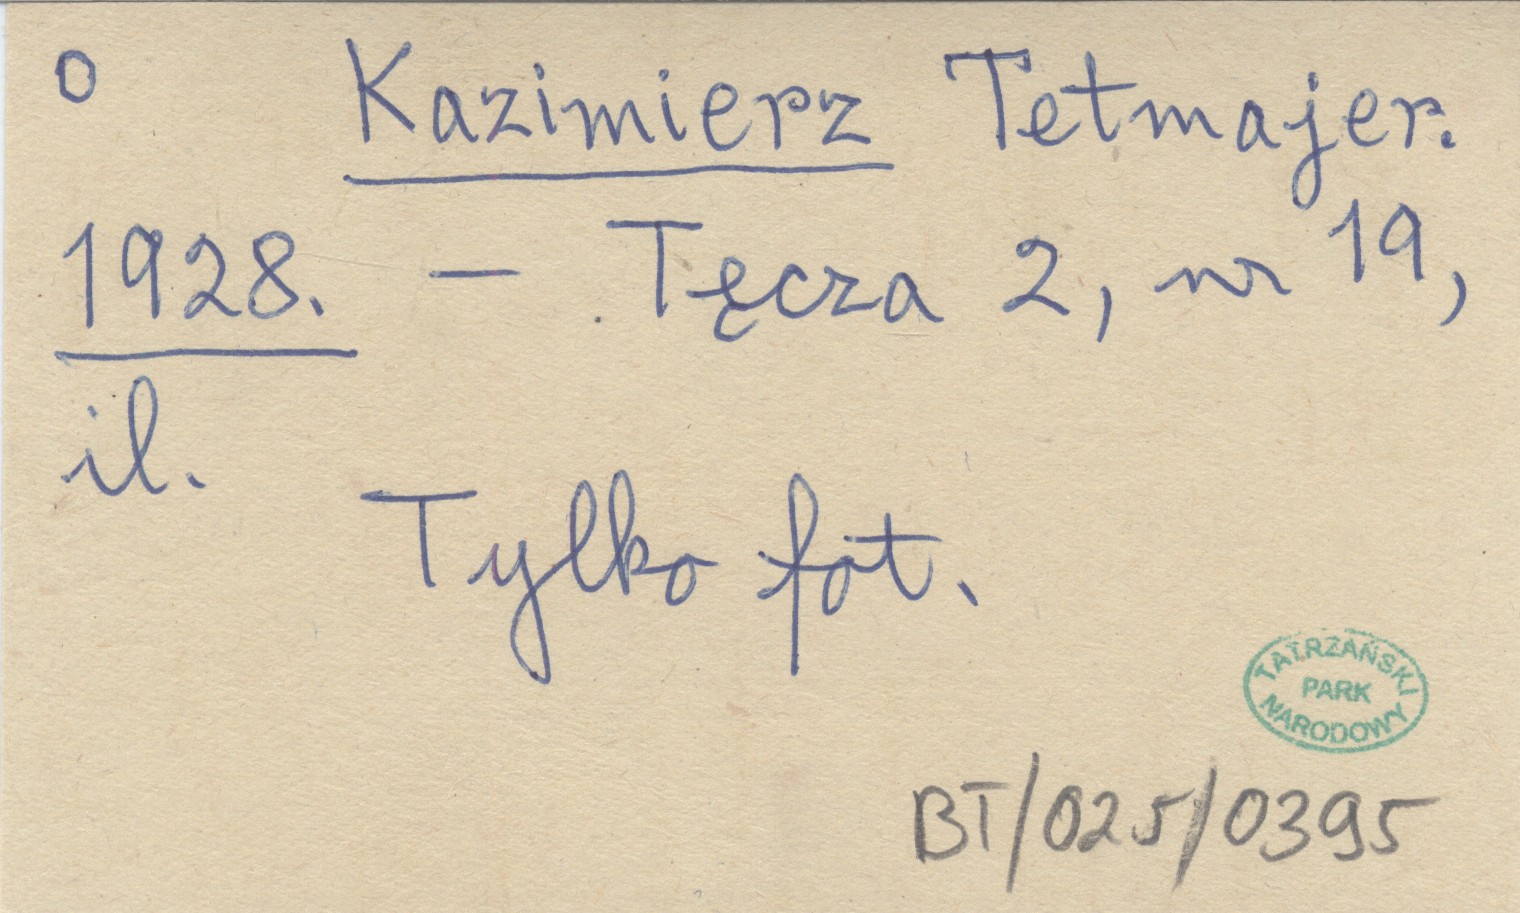 o Kazimierz Tetmajer.
1928. – Tęcza 2, nr 19,
il.
Tylko fot.
TATRZAŃSKI
PARK
NARODOWY
BT/025/0395